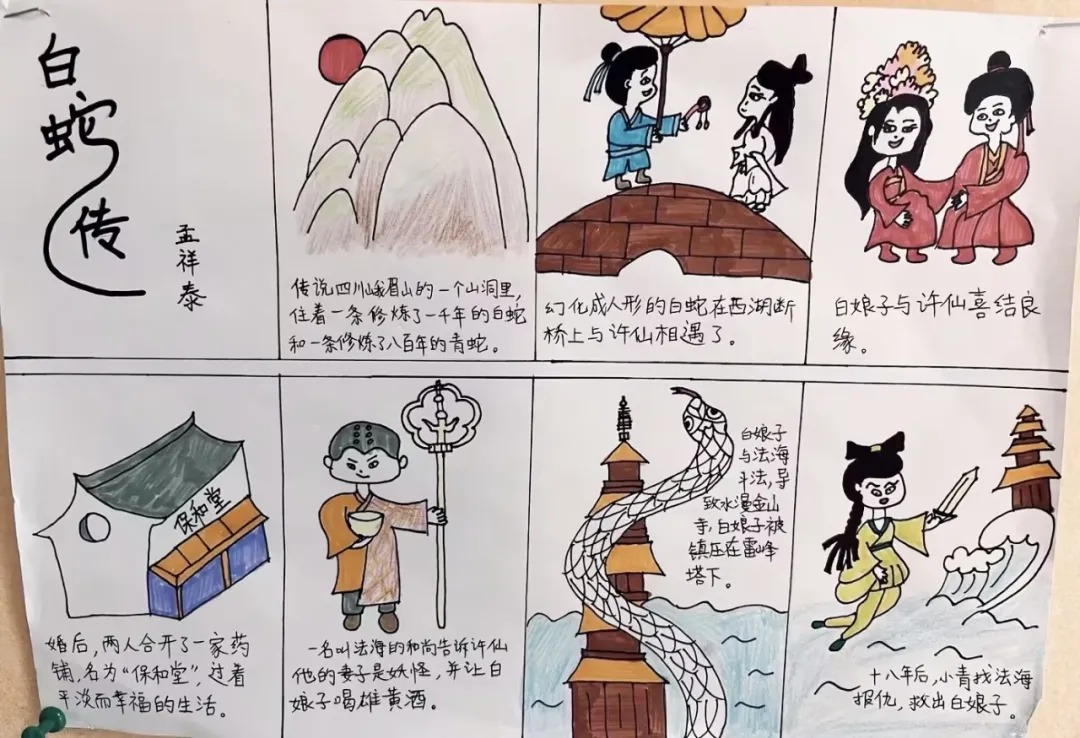 白蛇传
孟祥泰
传说四川峨眉山的一个山洞里，
住着一条修炼了一千年的白蛇
和一条修炼了八百年的青蛇。
幻化成人形的白蛇在西湖断
桥上与许仙相遇了。
白娘子与许仙喜结良
缘。
保和堂
婚后，两人合开了一家药
铺，名为“保和堂”，过着
平淡而幸福的生活。
一名叫法海的和尚告诉许仙
他的妻子是妖怪，并让白
娘子喝雄黄酒。
白娘子
与法海
斗法，导
致水漫金山
寺，白娘子被
镇压在雷峰
塔下。
十八年后，小青找法海
报仇，救出白娘子。